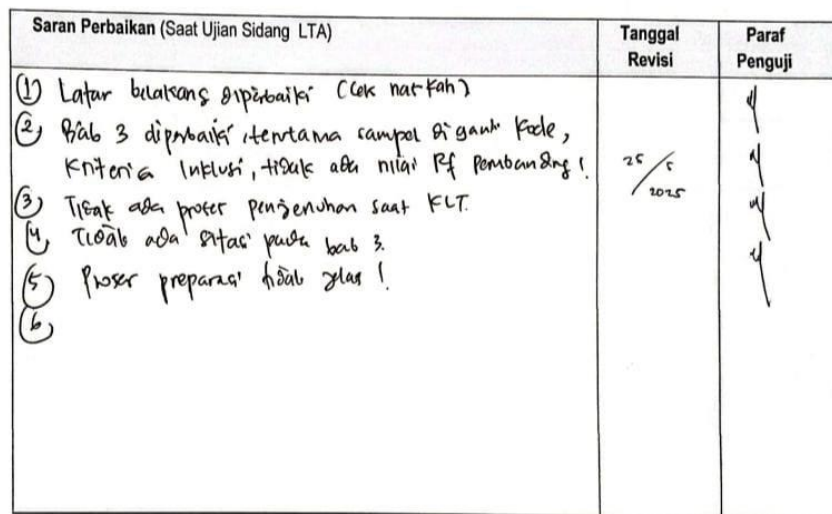 Saran Perbaikan (Saat Ujian Sidang LTA)
Tanggal Revisi
Paraf Penguji
(1) Latar belakang diperbaiki (Cek naskah)
(2) Bab 3 diperbaiki, terutama sampel diganti kode,
Kriteria Inklusi, tidak ada nilai Rf Pembanding!
25/5 2025
(3) Tidak ada proses penjenuhan saat KLT.
(4) Tidak ada sitasi pada bab 3.
(5) Proses preparasi tidak jelas!
(6)